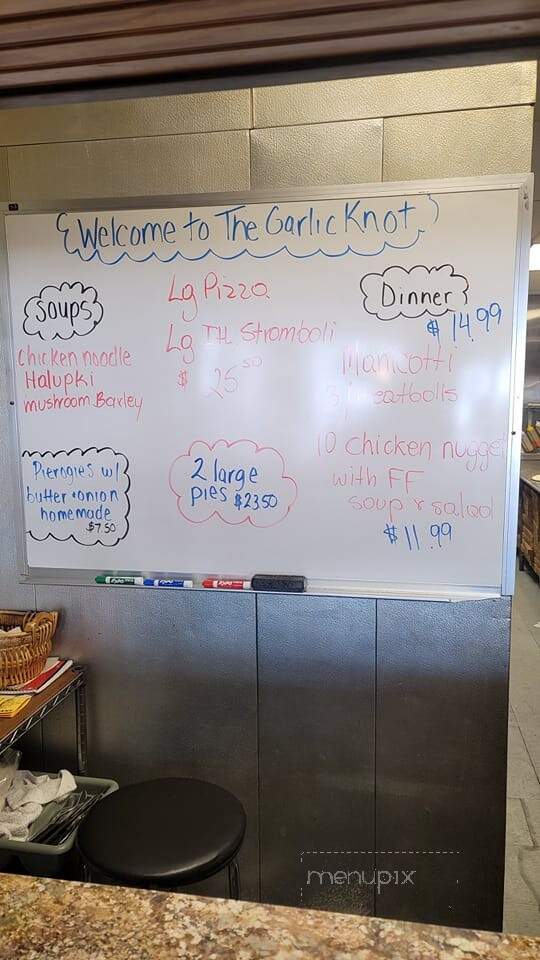 Welcome to The Garlic Knot
Soups
Chicken noodle
Halupki
mushroom Barley
Pierogies w/
butter + onion
homemade
$7.50
Lg Pizza
Lg It. Stromboli
$ 25 50
2 large
pies $23.50
Dinner
$14.99
Manicotti
3 meatballs
10 chicken nugget
with FF
soup & salad
$11.99
menupix